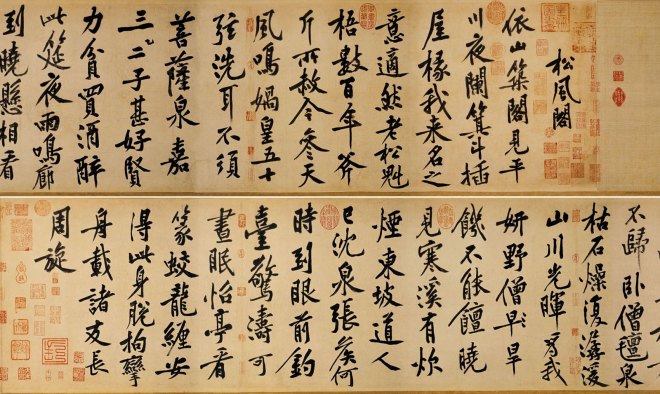 松風閣
依山築閣見平
川夜闌箕斗插
屋椽我來名之
意適然老松魁
梧數百年斧
斤所赦今參天
風鳴媧皇五十
弦洗耳不須
菩薩泉嘉
三二子甚好賢
力貧買酒醉
此筵夜雨鳴廊
到曉懸相看
不歸臥僧氊泉
枯石燥復潺湲
山川光暉為我
妍野僧早旱
饑不能饘曉
見寒溪有炊
煙東坡道人
已沈泉張侯何
時到眼前釣
臺驚濤可
晝眠怡亭看
篆蛟龍纏安
得此身脫拘攣
舟載諸友長
周旋